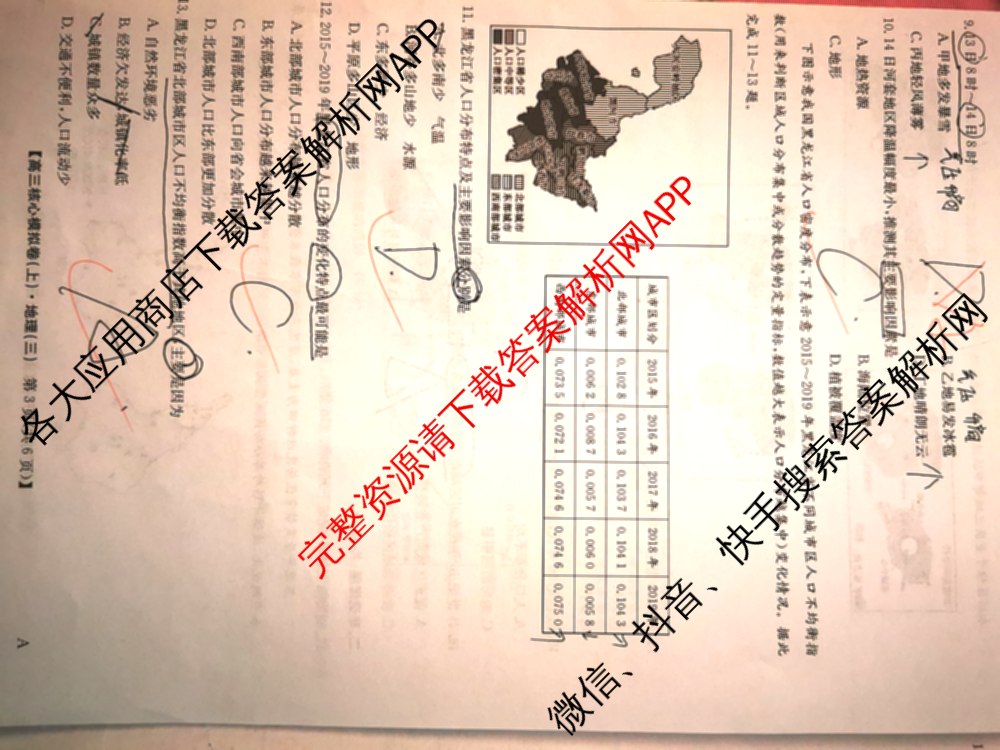 9. 13日8时~14日8时
A. 甲地多发暴雪
B. 乙地易发冰雹
C. 丙地轻风薄雾
地晴朗无云
气压 偏
气压 偏
10. 14日河套地区降温幅度最小,推测其主要影响因素是
A. 地热资源
B. 海
C. 地形
D. 植被覆
下图示意我国黑龙江省人口密度分布,下表示意2015~2019年黑 不同城市区人口不均衡指
数(用来判断区域人口分布集中或分散趋势的定量指标,数值越大表示人口分 集中)变化情况。据此
完成11~13题。
人口稀少区
人口中等区
人口密集区
北部城市
东部城市
西南部城市
城市区划分 2015年 2016年 2017年 2018年 2019
北部城市 0.1028 0.1043 0.1037 0.1041 0.1043
城市 0.0062 0.0087 0.0057 0.0060 0.0058
0.0735 0.0721 0.0746 0.0746 0.0750
11. 黑龙江省人口分布特点及主要影响因素分别是
多南少 气温
多山地少 水源
C. 东多 经济
D. 平原多山 地形
D
12. 2015~2019年 人口分布的变化特点最可能是
A. 北部城市人口分 分散
B. 东部城市人口分布越
C. 西南部城市人口向省会城市
D. 北部城市人口比东部更加分散
C
13. 黑龙江省北部城市区人口不均衡指数高 地区,主要是因为
A. 自然环境恶劣
B. 经济欠发达,城镇化率低
C. 城镇数量众多
D. 交通不便利,人口流动少
【高三核心模拟卷(上)·地理(三) 第3页 6页)】
A
各大应用商店下载答案解析网APP
完整资源请下载答案解析网APP
微信、抖音、快手搜索答案解析网